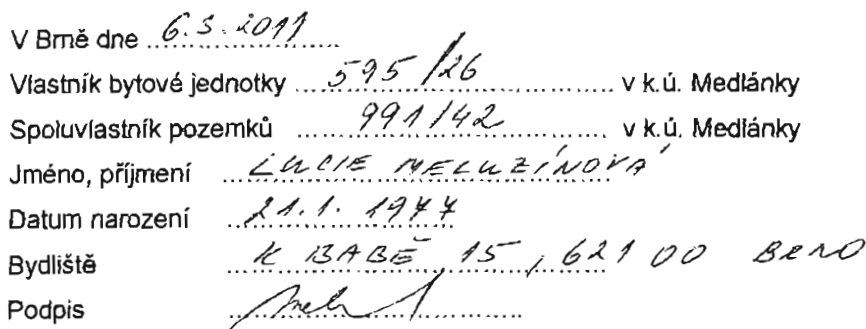 V Brně dne 6.5.2011
Vlastník bytové jednotky 595/26 v k.ú. Medlánky
Spoluvlastník pozemků 991/42 v k.ú. Medlánky
Jméno, příjmení LUCIE MELUZÍNOVÁ
Datum narození 21.1.1977
Bydliště K BABĚ 15, 621 00 BRNO
Podpis